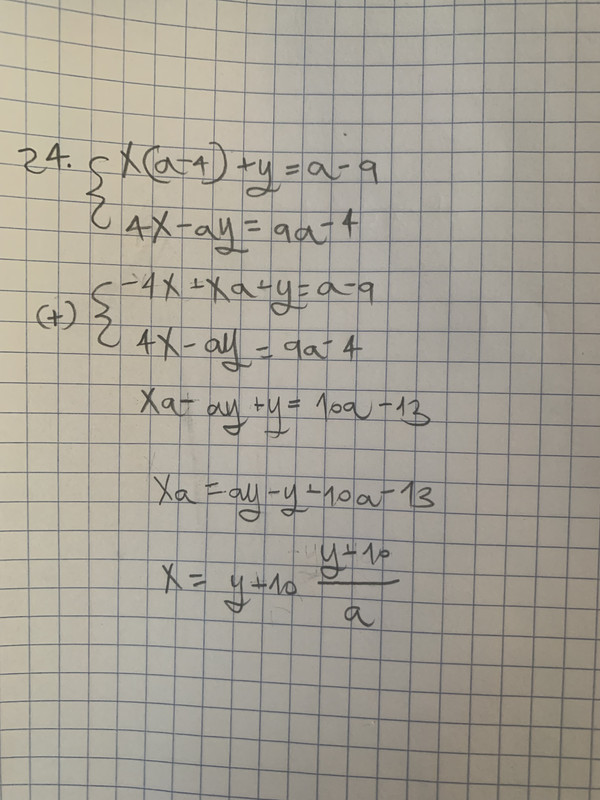 24. { x(a-4)+y=a-9
4x-ay=9a-4
(+) { -4x+xa+y=a-9
4x-ay=9a-4
xa-ay+y=10a-13
xa=ay-y+10a-13
x= y+10 \frac{y+10}{a}